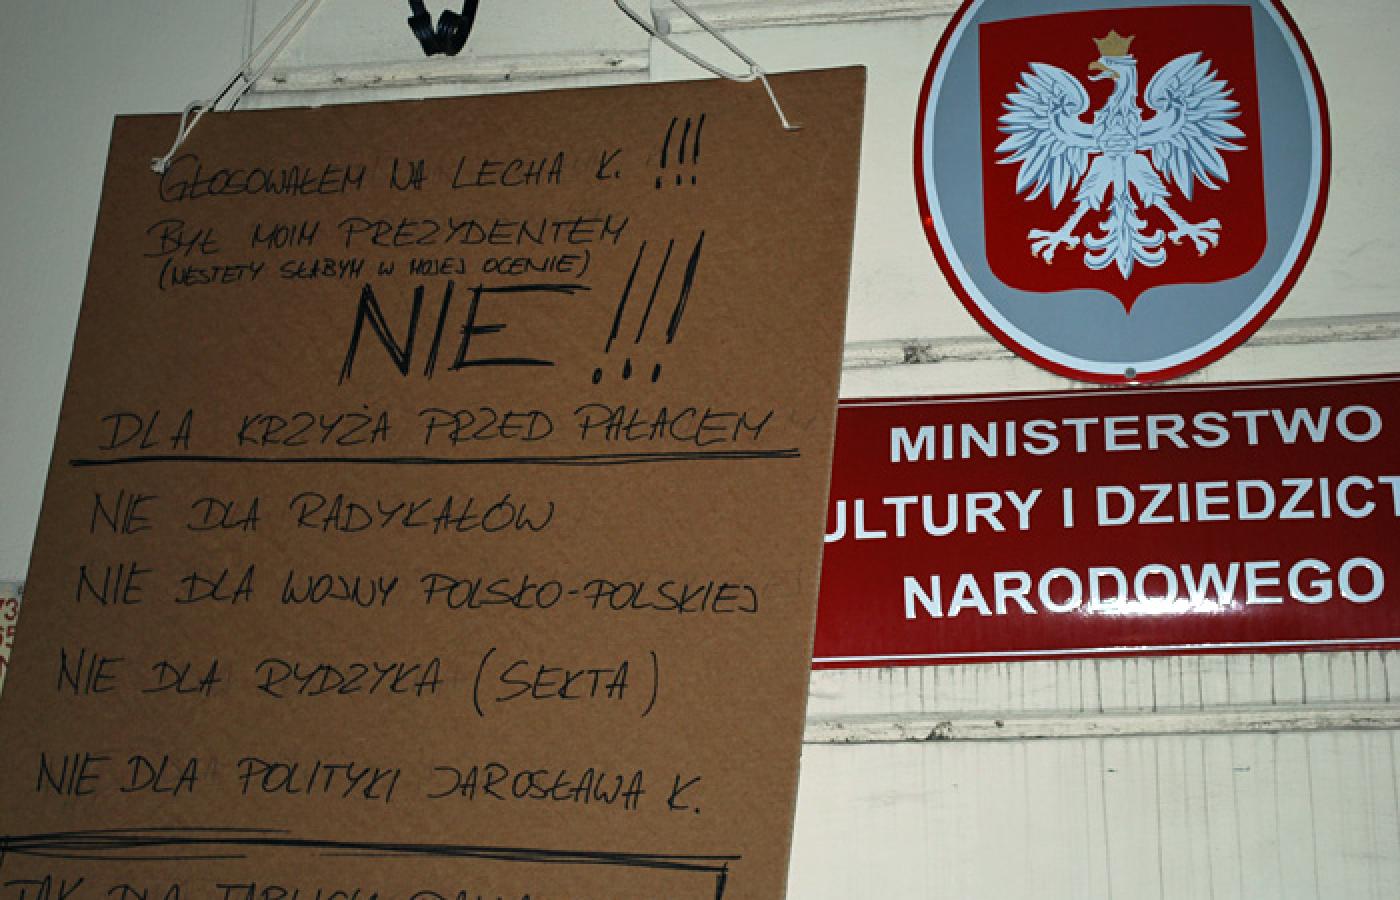 GŁOSOWAŁEM NA LECHA K. !!!
BYŁ MOIM PREZYDENTEM
(NIESTETY SŁABYM W MOJEJ OCENIE)
NIE !!!
DLA KRZYŻA PRZED PAŁACEM
NIE DLA RADYKAŁÓW
NIE DLA WOJNY POLSKO-POLSKIEJ
NIE DLA RYDZYKA (SEKTA)
NIE DLA POLITYKI JAROSŁAWA K.
TAK DLA TABLICY
MINISTERSTWO
ULTURY I DZIEDZICT
NARODOWEGO